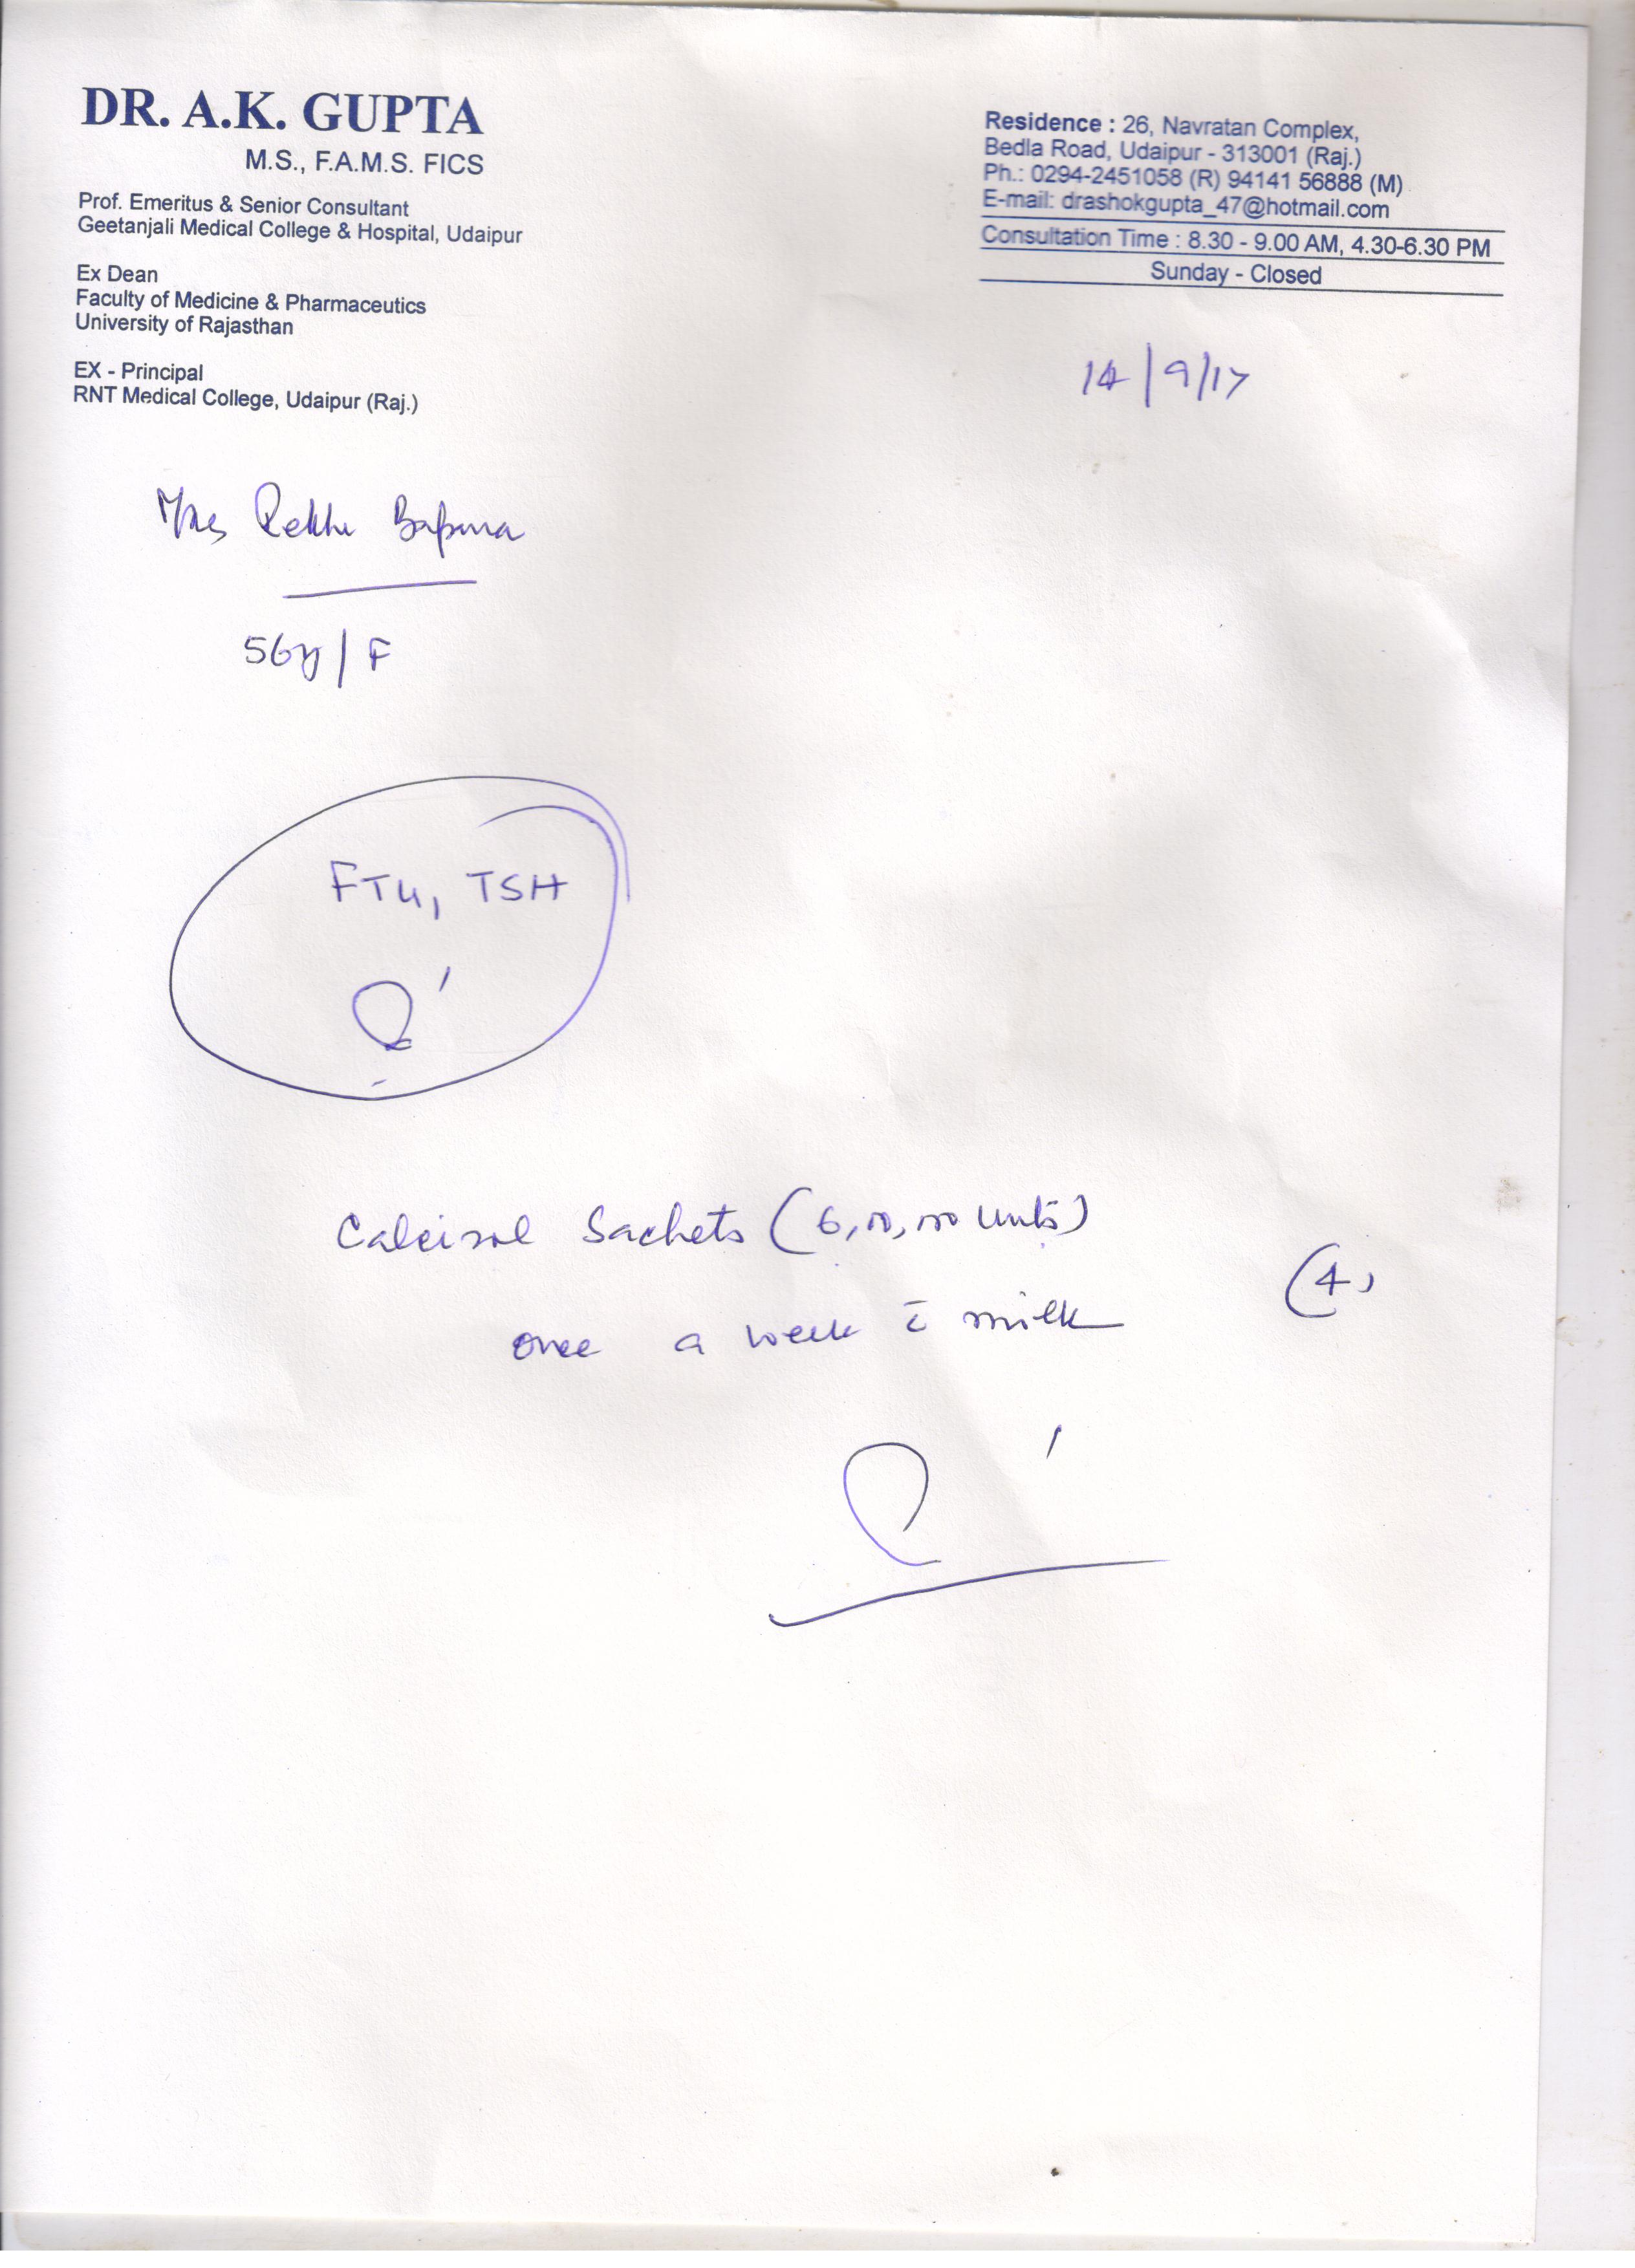 DR. A.K. GUPTA
M.S., F.A.M.S. FICS
Prof. Emeritus & Senior Consultant
Geetanjali Medical College & Hospital, Udaipur
Ex Dean
Faculty of Medicine & Pharmaceutics
University of Rajasthan
EX - Principal
RNT Medical College, Udaipur (Raj.)
Residence : 26, Navratan Complex,
Bedla Road, Udaipur - 313001 (Raj.)
Ph.: 0294-2451058 (R) 94141 56888 (M)
E-mail: drashokgupta_47@hotmail.com
Consultation Time : 8.30 - 9.00 AM, 4.30-6.30 PM
Sunday - Closed
14/9/17
Mrs
56y/F
FT4, TSH
Sachets (6, units)
(4)
once a week c̄ milk